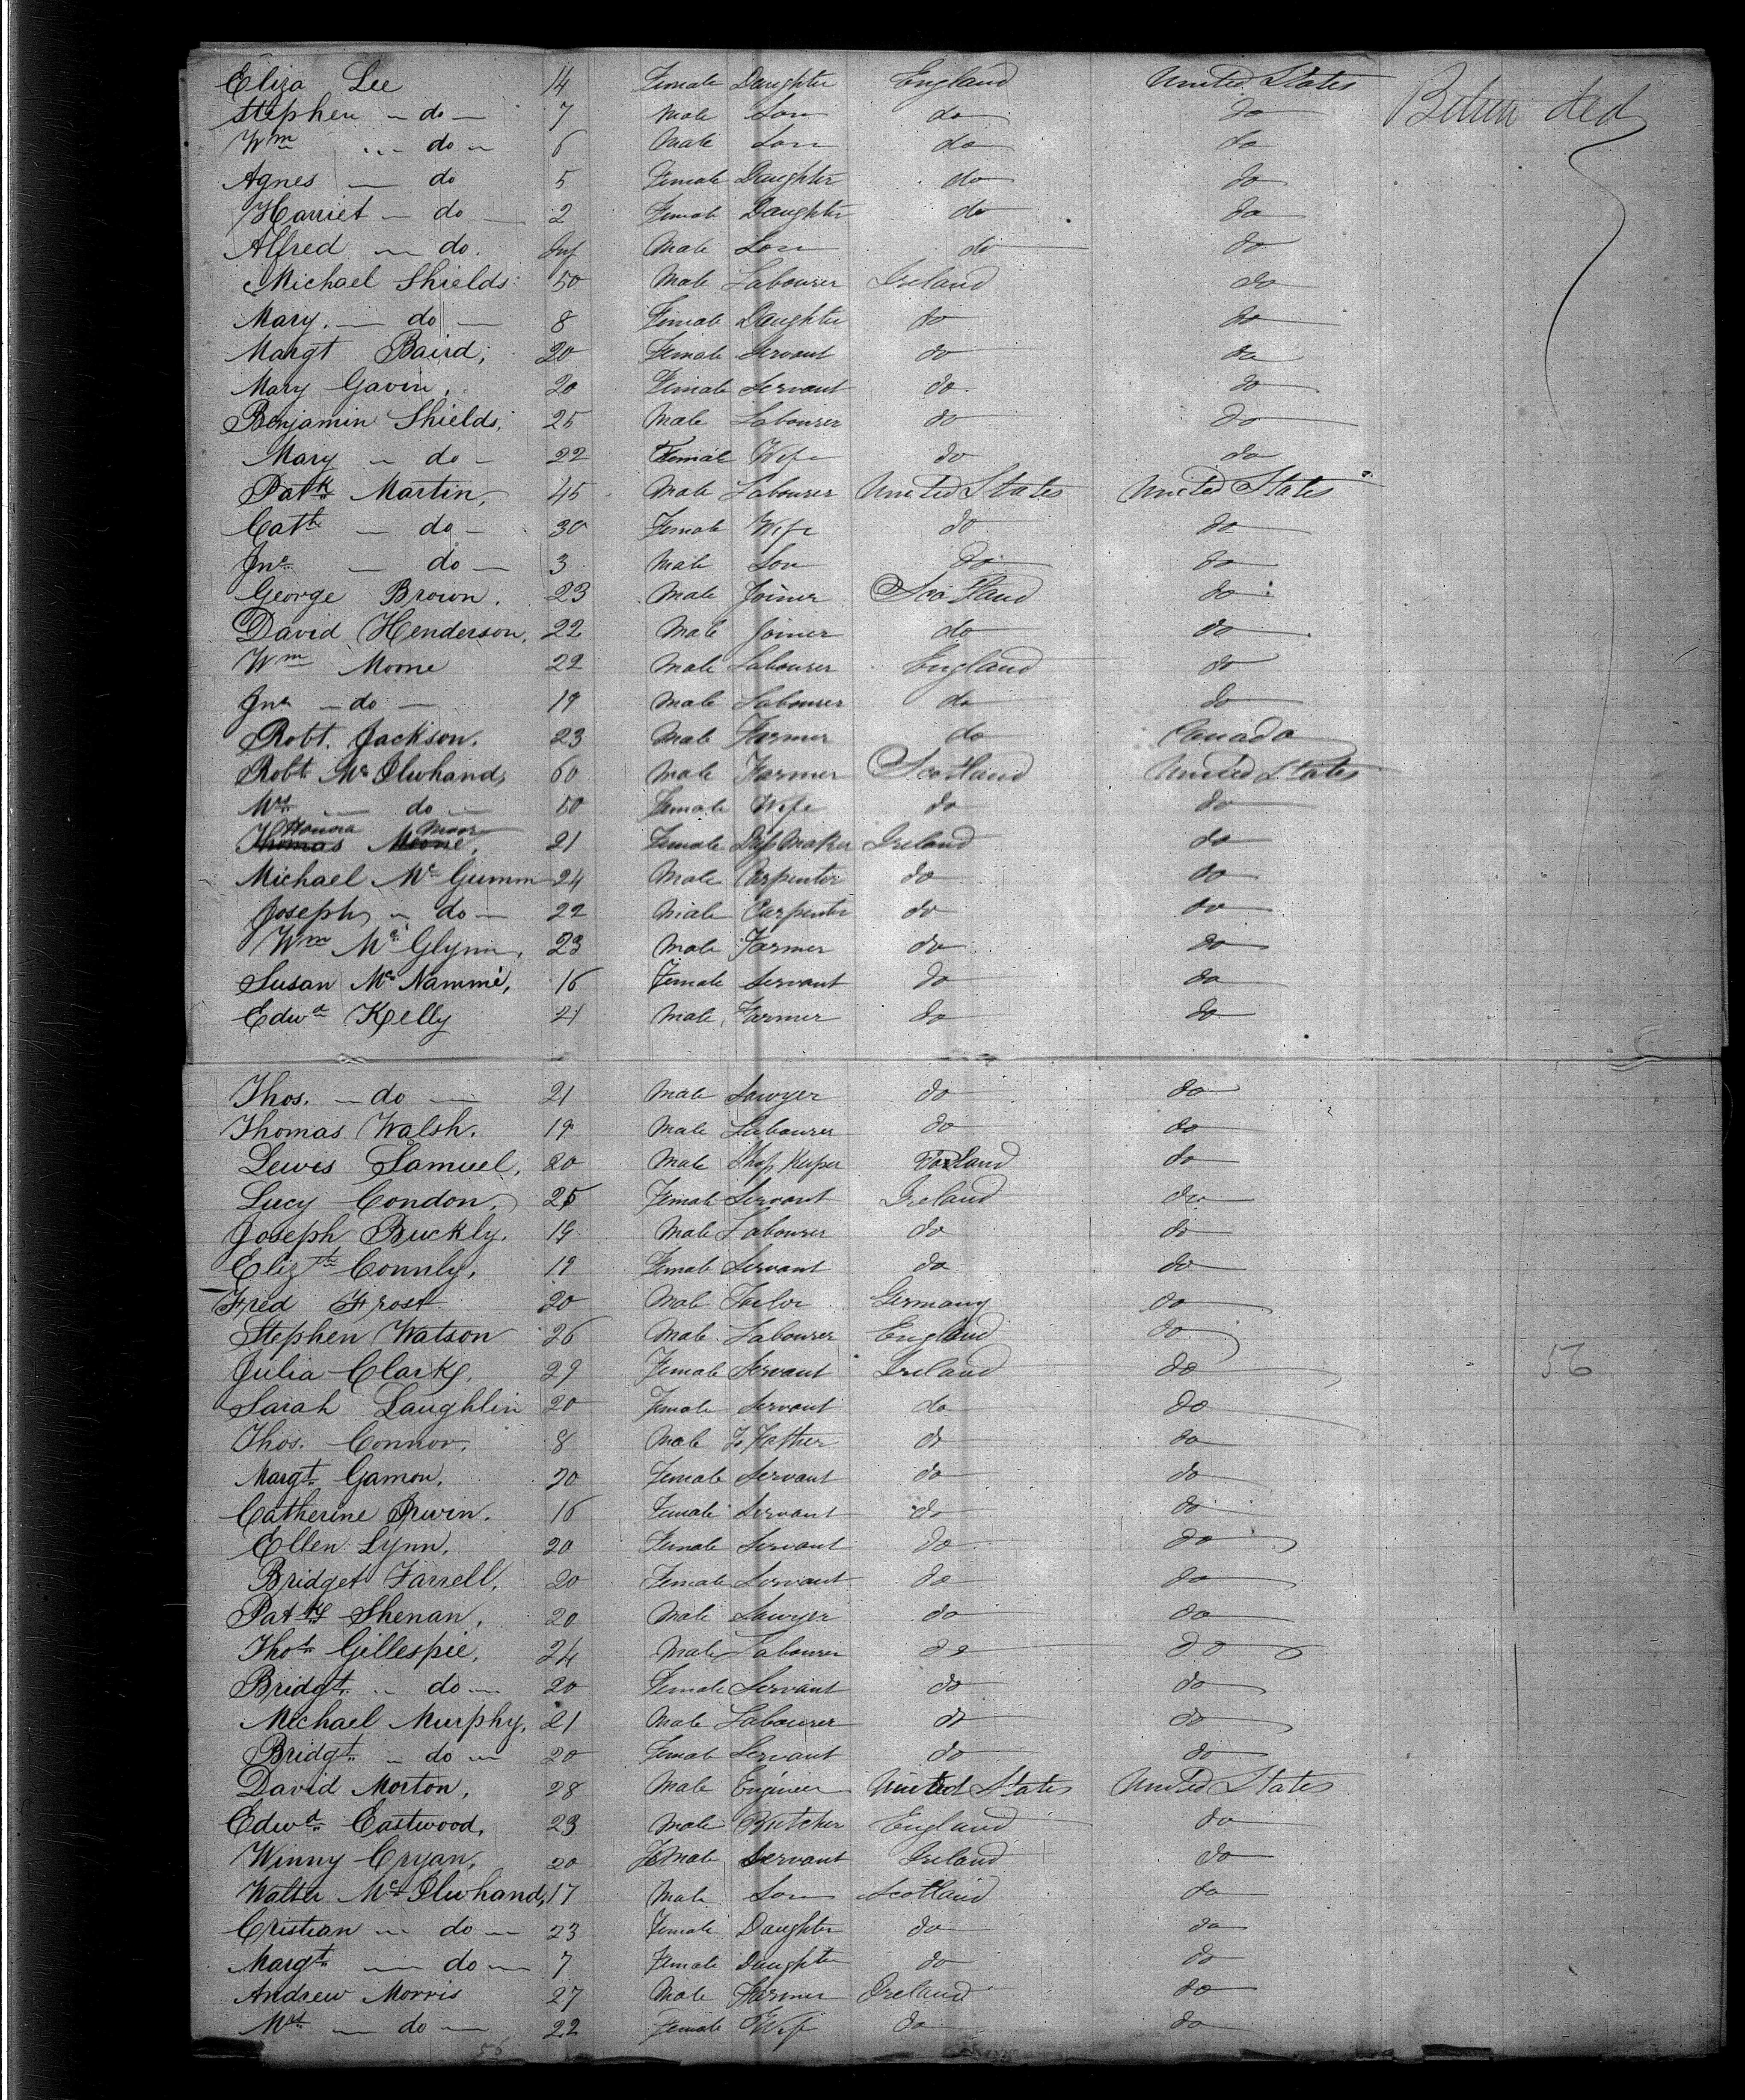 Eliza Lee 14 Female Daughter England United States
Stephen — do — 7 Male Son do do
Wm — do — 6 Male Son do do
Agnes — do 5 Female Daughter do do
Harriet — do — 2 Female Daughter do do
Alfred — do. Inf Male Son do do
Michael Shields 50 Male Labourer Ireland do
Mary. — do — 8 Female Daughter do do
Margt Baird, 20 Female Servant do do
Mary Gavin, 20 Female Servant do do
Benjamin Shields, 25 Male Labourer do do
Mary — do — 22 Female Wife do do
Patk Martin, 45 Male Labourer United States United States
Cath — do — 30 Female Wife do do
Jno — do — 3 Male Son do do
George Brown. 23 Male Joiner Scotland do
David Henderson, 22 Male Joiner do do
Wm Moone 22 Male Labourer England do
Jno — do — 19 Male Labourer do do
Robt. Jackson. 23 Male Farmer do Canada
Robt Mc Ilwhand, 60 Male Farmer Scotland United States
Mrs — do — 50 Female Wife do do
Honora Moore
Thomas Moone, 21 Female Dress Maker Ireland do
Michael Mc Gumm 24 Male Carpenter do do
Joseph — do — 22 Male Carpenter do do
Wm Mc Glynn, 23 Male Farmer do do
Susan Mc Nammé, 16 Female Servant do do
Edwd Kelly 21 Male Farmer do do
Thos. — do — 21 Male Sawyer do do
Thomas Walsh. 19 Male Labourer do do
Lewis Samuel, 20 Male Shop Keeper Poland do
Lucy Condon, 25 Female Servant Ireland do
Joseph Buckly. 19 Male Labourer do do
Elizth Connly, 19 Female Servant do do
Fred Frost 20 Male Tailor Germany do
Stephen Watson 26 Male Labourer England do
Julia Clark, 29 Female Servant Ireland do 56
Sarah Laughlin 20 Female Servant do do
Thos. Connor, 8 Male To Father do do
Margt Gamon, 20 Female Servant do do
Catherine Irwin. 16 Female Servant do do
Ellen Lynn, 20 Female Servant do do
Bridget Farrell, 20 Female Servant do do
Patk Shenan, 20 Male Sawyer do do
Thos Gillespie, 24 Male Labourer do do
Bridgt — do — 20 Female Servant do do
Michael Murphy, 21 Male Labourer do do
Bridgt — do — 20 Female Servant do do
David Morton, 28 Male Engineer United States United States
Edwd Eastwood, 23 Male Butcher England do
Winny Cryan, 20 Female Servant Ireland do
Walter Mc Ilwhand, 17 Male Son Scotland do
Cristian — do — 23 Female Daughter do do
Margt — do — 7 Female Daughter do do
Andrew Morris 27 Male Farmer Ireland do
Mrs — do — 22 Female Wife do do
56